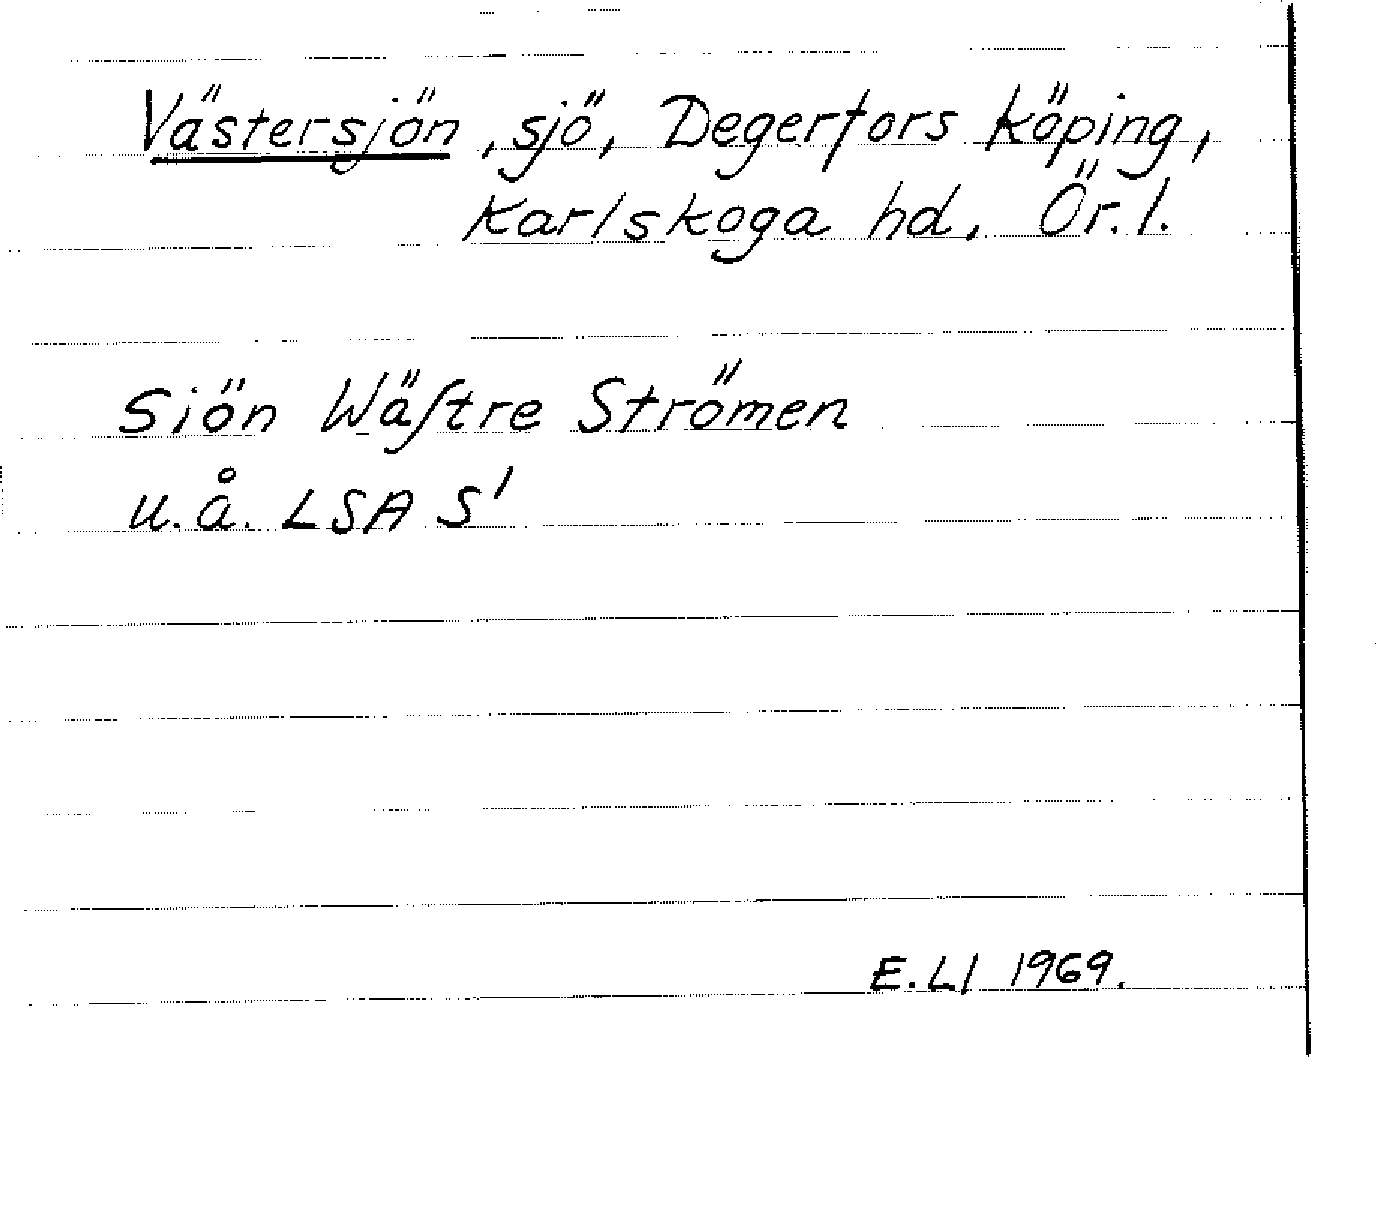 Västersjön, sjö, Degerfors köping,
Karlskoga hd, Ör. l.
Siön Wäſtre Strömen
u. å. LSA S'
E. Ll 1969.